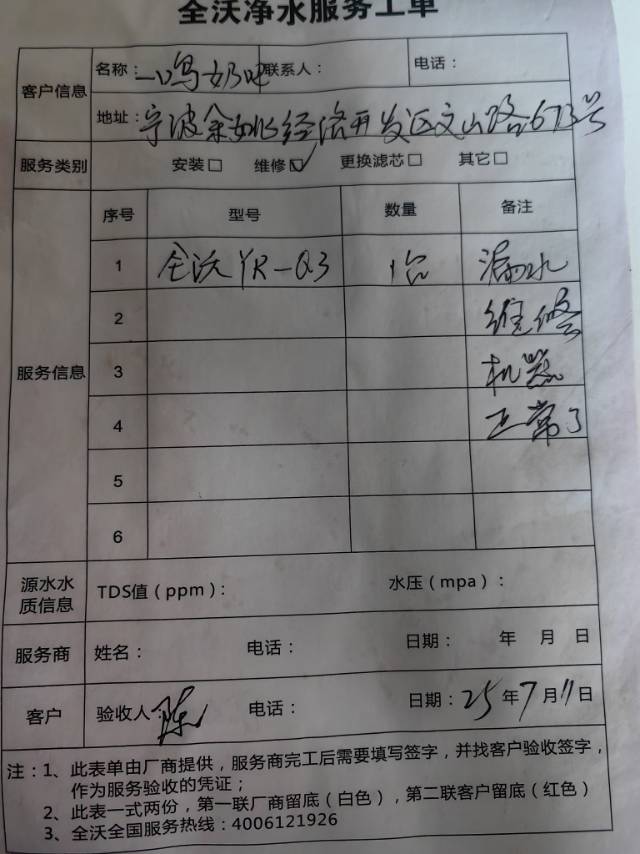 全沃净水服务工单
客户信息
名称：一鸣奶吧 联系人： 电话：
地址：宁波余姚经济开发区文山路673号
服务类别 安装□ 维修☑ 更换滤芯□ 其它□
服务信息
序号 型号 数量 备注
1 全沃YR-Q3 1台 漏水
2 维修
3 机器
4 正常了
5
6
源水水质信息 TDS值（ppm）： 水压（mpa）：
服务商 姓名： 电话： 日期： 年 月 日
客户 验收人：陈 电话： 日期：25年7月11日
注：1、此表单由厂商提供，服务商完工后需要填写签字，并找客户验收签字，
作为服务验收的凭证；
2、此表一式两份，第一联厂商留底（白色），第二联客户留底（红色）
3、全沃全国服务热线：4006121926